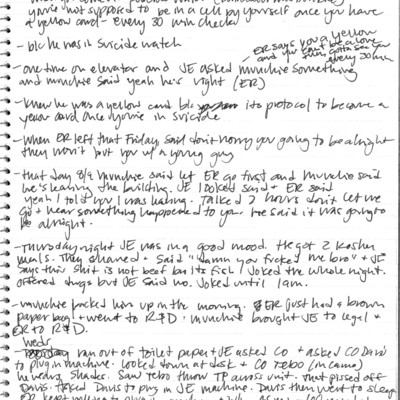 you're not supposed to be in a cell by yourself once you have
a yellow card - every 30 min checked
- b/c he was in suicide watch
ER says you a yellow
and you can't be alone
every 30 min
- one time on elevator and JE asked munchie something
and munchie said yeah he's right (ER)
- Knew he was a yellow card b/c its protocol to become a
yellow card once in suicide
- When ER left that Friday, said don't worry you going to be alright
they won't put you w/ a young guy
- that day 8/9 Munchie said let ER go first and Munchie said
he's leaving the building. JE looked said + ER said
yeah I told you I was leaving. Talked 2 hours don't let me
go + hear something happened to you. He said it was going to
be alright.
- Thursday night JE was in a good mood. He got 2 kosher
meals. They shared + said "damn you fucked me bro" + JE
says this shit is not beef but its fish / Joked the whole night.
offered drugs but JE said no. Joked until 1am.
- munchie packed him up in the morning. ER just had a brown
paper bag + went to R+D. munchie brought JE to legal +
ER to R+D.
Weds
- ran out of toilet paper + JE asked CO + asked CO Davis
to plug in machine. Looked down at desk + CO Tebo (in came)
wearing shades. Saw Tebo throw TP across unit. That pissed off
Davis. Asked Davis to plug in JE machine. Davis then went to sleep